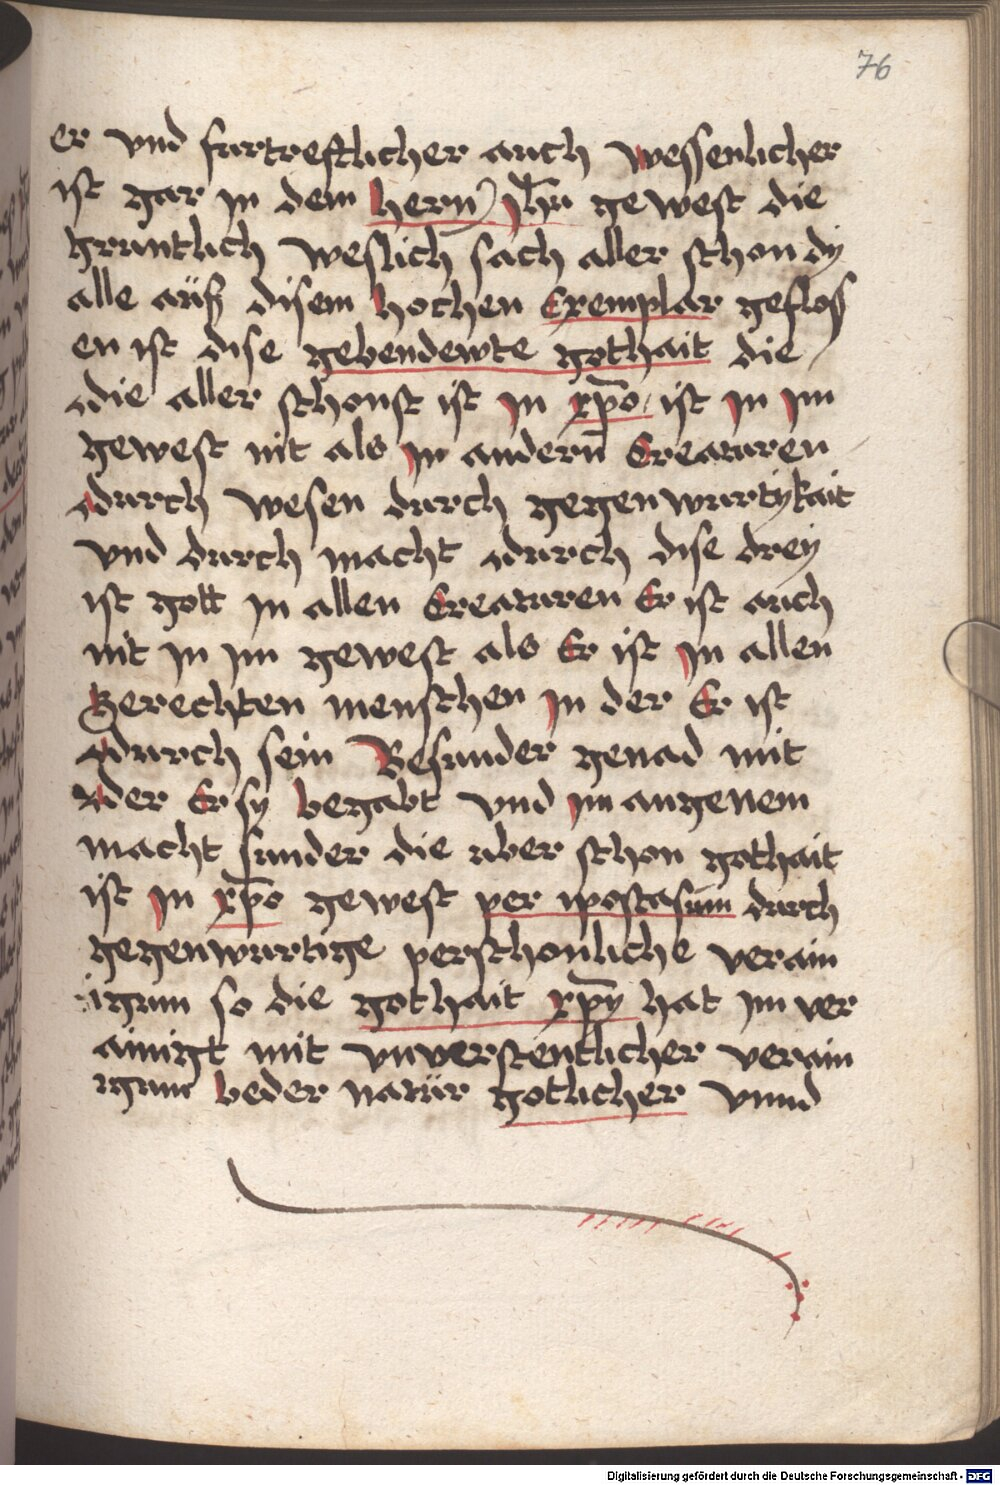 76
er vnd furtreftlicher auch wessenlicher
ist gar in dem hern Jhu gewest die
gruntlich weslich sach aller schon dy
alle auß disem hochen Exemplar geflos
en ist dise gebendewte gothait die
die aller schonst ist in xpo ist in im
gewest nit als in andern Creaturen
durch wesen durch gegenwurtykait
vnd durch macht durch dise drey
ist gott in allen Creaturen Er ist auch
nit in im gewest als Er ist in allen
gerechten menschen in der Er ist
durch sein Besunder genad mit
der Er sy begabt vnd im angenem
macht sunder die uber schon gothait
ist in xpo gewest per ipostasim durch
gegenwurtige perschonliche verain
igum so die gothait xpy hat im ver
ainigt mit vnverstentlicher verain
igum beder natür gotlicher vnnd
Digitalisierung gefördert durch die Deutsche Forschungsgemeinschaft - DFG